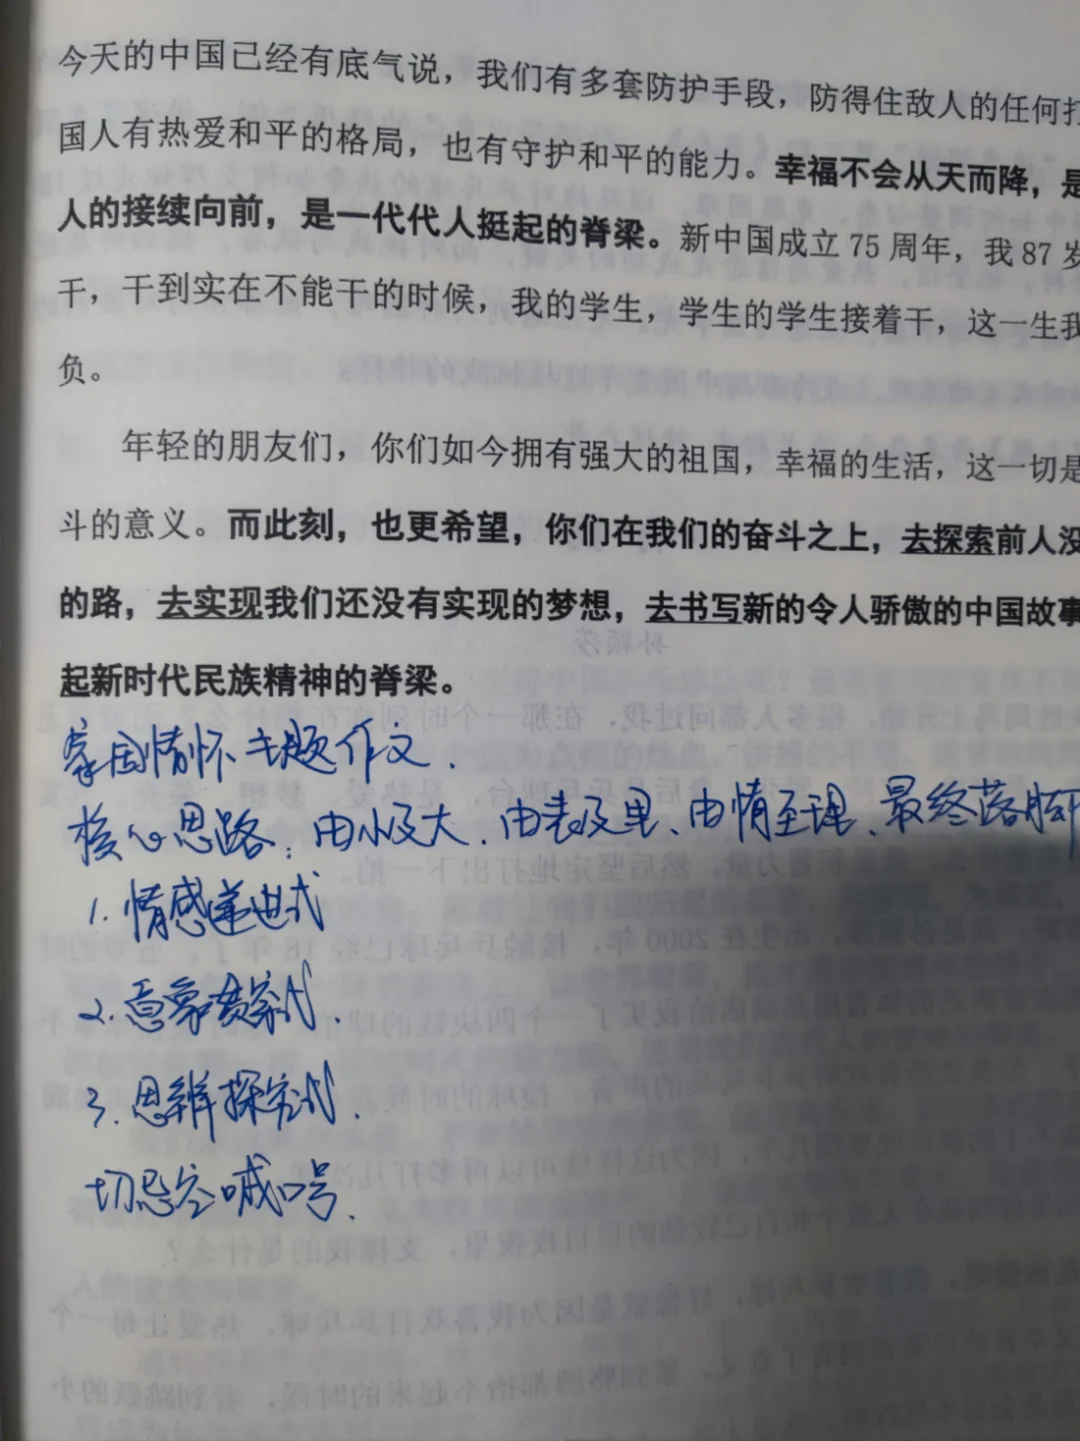 今天的中国已经有底气说，我们有多套防护手段，防得住敌人的任何打
国人有热爱和平的格局，也有守护和平的能力。幸福不会从天而降，是
人的接续向前，是一代代人挺起的脊梁。新中国成立75周年，我87岁
干，干到实在不能干的时候，我的学生，学生的学生接着干，这一生我
负。
年轻的朋友们，你们如今拥有强大的祖国，幸福的生活，这一切是
斗的意义。而此刻，也更希望，你们在我们的奋斗之上，去探索前人没
的路，去实现我们还没有实现的梦想，去书写新的令人骄傲的中国故事
起新时代民族精神的脊梁。
家国情怀主题作文.
核心思路：由小及大、由表及里、由情至理、最终落脚
1.情感递进式
2.意象贯穿式.
3.思辨探究式.
切忌空喊口号.